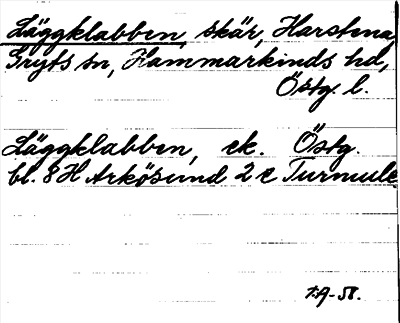 Läggklabben, skär, Harstena,
Gryts sn, Hammarkinds hd,
Östg. l.
Läggklabben, ek. Östg.
bl. 8 H Arkösund 2 c Turmule
t.A-58.